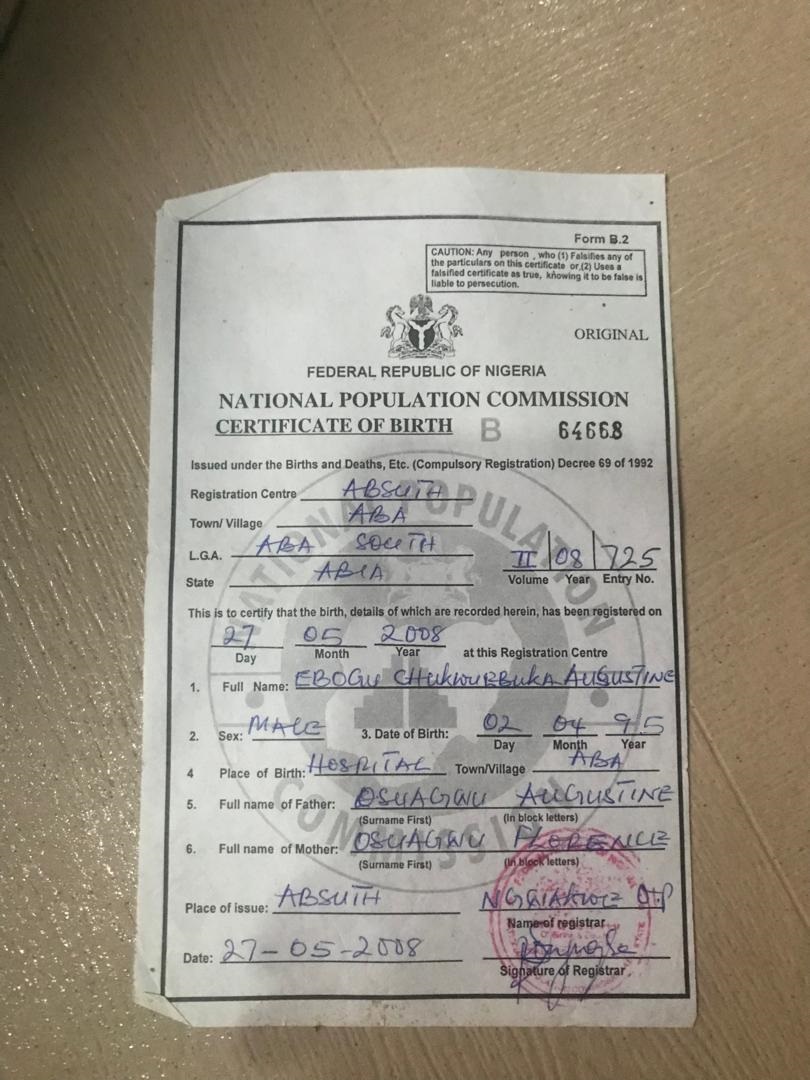 Form B.2
CAUTION: Any person , who (1) Falsifies any of
the particulars on this certificate or,(2) Uses a
falsified certificate as true, knowing it to be false is
liable to persecution.
ORIGINAL
FEDERAL REPUBLIC OF NIGERIA
NATIONAL POPULATION COMMISSION
CERTIFICATE OF BIRTH B 64668
Issued under the Births and Deaths, Etc. (Compulsory Registration) Decree 69 of 1992
Registration Centre ABSUTH
Town/ Village ABA
L.G.A. ABA SOUTH
II 08 725
State ABIA
Volume Year Entry No.
This is to certify that the birth, details of which are recorded herein, has been registered on
27 05 2008
Day Month Year at this Registration Centre
1. Full Name: EBOGU CHUKWUEBUKA AUGUSTINE
2. Sex: MALE 3. Date of Birth: 02 04 95
Day Month Year
4 Place of Birth: HOSPITAL Town/Village ABA
5. Full name of Father: OSUAGWU AUGUSTINE
(Surname First) (In block letters)
6. Full name of Mother: OSUAGWU FLORENCE
(Surname First) (In block letters)
Place of issue: ABSUTH
Name of registrar
Date: 27-05-2008
Signature of Registrar
NATIONAL POPULATION COMMISSION